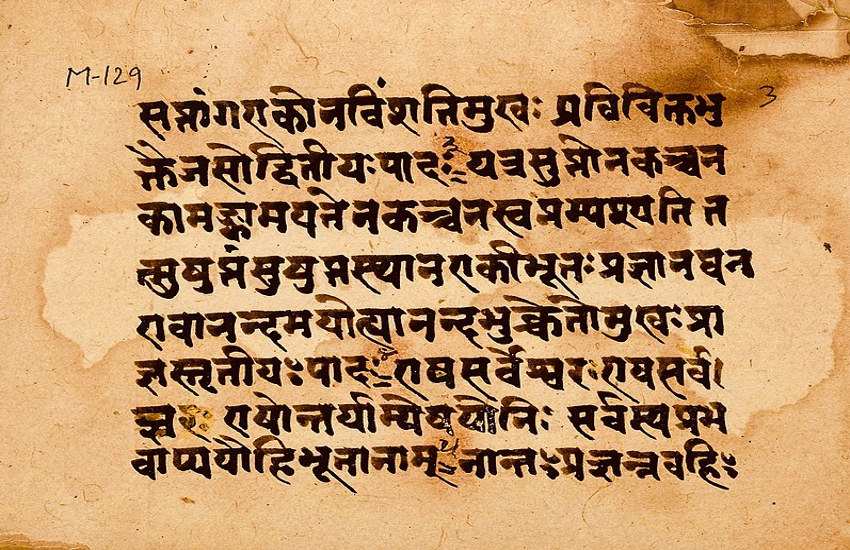 M-129
3
सप्तांगएकोनविंशतिमुखः प्रविविक्तभु
क्तैजसोद्वितीयःपादः यत्रसुप्तोनकञ्चन
कामङ्कामयतेनकञ्चनस्वप्नम्पश्यतित
त्सुषुप्तंसुषुप्तस्थानएकीभूतःप्रज्ञानघन
एवानन्दमयोह्यानन्दभुक्चेतोमुखःप्रा
ज्ञस्तृतीयःपादः३ एषसर्वेश्वरःएषसर्व।
ज्ञः एषोन्तर्याम्येषयोनिः सर्वस्यप्रभ
वाप्ययौहिभूतानाम् नान्तःप्रज्ञन्नबहिः